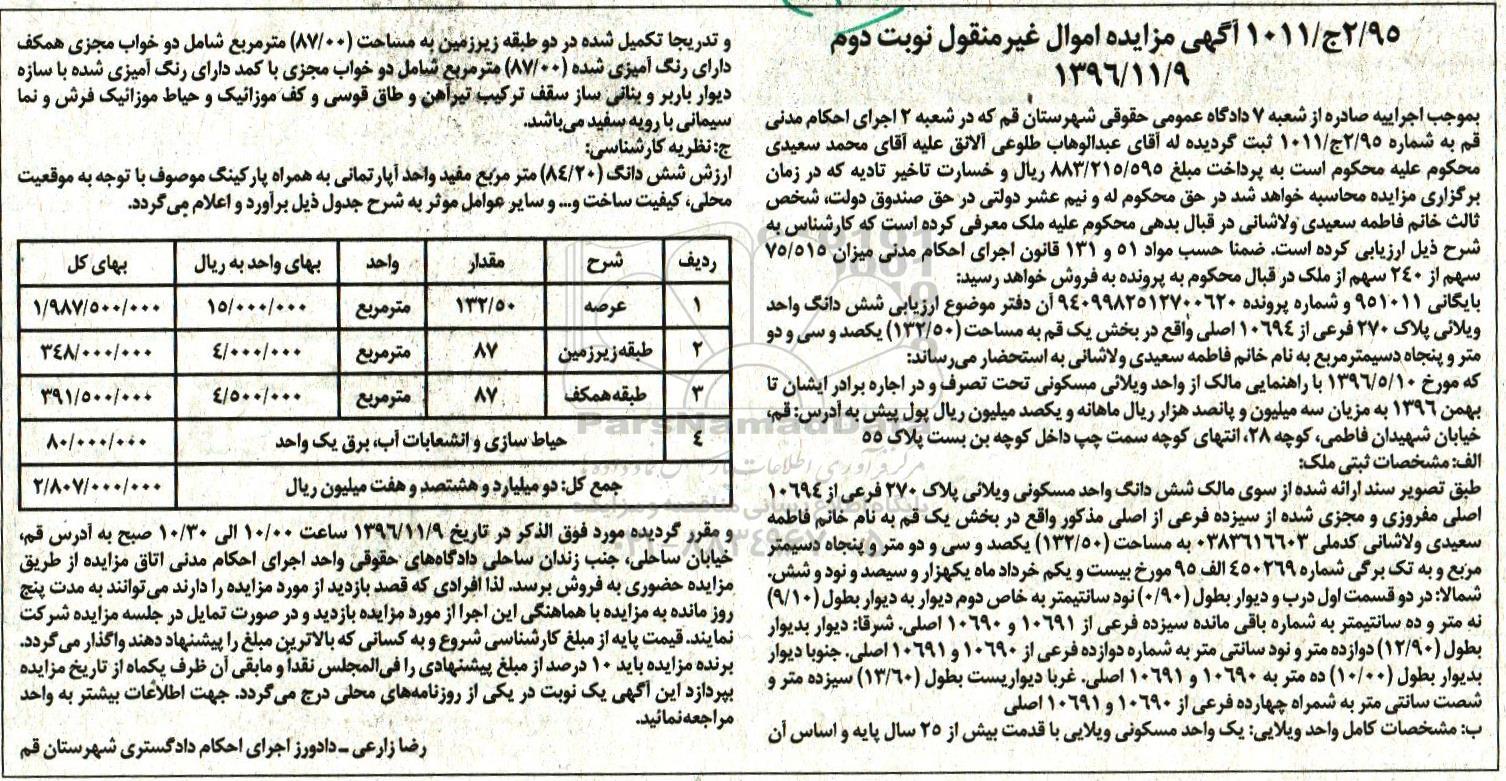 ۲/۹۵ج/۱۰۱۱ آگهی مزایده اموال غیرمنقول نوبت دوم
۱۳۹۶/۱۱/۹
بموجب اجراییه صادره از شعبه ۷ دادگاه عمومی حقوقی شهرستان قم که در شعبه ۲ اجرای احکام مدنی
قم به شماره ۲/۹۵ج/۱۰۱۱ ثبت گردیده له آقای عبدالوهاب طلوعی آلانق علیه آقای محمد سعیدی
محکوم علیه محکوم است به پرداخت مبلغ ۸۸۳/۲۱۵/۵۹۵ ریال و خسارت تاخیر تادیه که در زمان
برگزاری مزایده محاسبه خواهد شد در حق محکوم له و نیم عشر دولتی در حق صندوق دولت، شخص
ثالث خانم فاطمه سعیدی ولاشانی در قبال بدهی محکوم علیه ملک معرفی کرده است که کارشناس به
شرح ذیل ارزیابی کرده است. ضمنا حسب مواد ۵۱ و ۱۳۱ قانون اجرای احکام مدنی میزان ۷۵/۵۱۵
سهم از ۲۴۰ سهم از ملک در قبال محکوم به پرونده به فروش خواهد رسید:
بایگانی ۹۵۱۰۱۱ و شماره پرونده ۹۴۰۹۹۸۲۵۱۲۷۰۰۶۲۰ آن دفتر موضوع ارزیابی شش دانگ واحد
ویلائی پلاک ۲۷۰ فرعی از ۱۰۶۹۴ اصلی واقع در بخش یک قم به مساحت (۱۳۲/۵۰) یکصد و سی و دو
متر و پنجاه دسیمترمربع به نام خانم فاطمه سعیدی ولاشانی به استحضار می‌رساند:
که مورخ ۱۳۹۶/۵/۱۰ با راهنمایی مالک از واحد ویلائی مسکونی تحت تصرف و در اجاره برادر ایشان تا
بهمن ۱۳۹۶ به مزیان سه میلیون و پانصد هزار ریال ماهانه و یکصد میلیون ریال پول پیش به آدرس: قم،
خیابان شهیدان فاطمی، کوچه ۲۸، انتهای کوچه سمت چپ داخل کوچه بن بست پلاک ۵۵
الف: مشخصات ثبتی ملک:
طبق تصویر سند ارائه شده از سوی مالک شش دانگ واحد مسکونی ویلائی پلاک ۲۷۰ فرعی از ۱۰۶۹۴
اصلی مفروزی و مجزی شده از سیزده فرعی از اصلی مذکور واقع در بخش یک قم به نام خانم فاطمه
سعیدی ولاشانی کدملی ۰۳۸۳۶۱۶۶۰۳ به مساحت (۱۳۲/۵۰) یکصد و سی و دو متر و پنجاه دسیمتر
مربع و به تک برگی شماره ۴۵۰۲۶۹ الف ۹۵ مورخ بیست و یکم خرداد ماه یکهزار و سیصد و نود و شش.
شمالا: در دو قسمت اول درب و دیوار بطول (۰/۹۰) نود سانتیمتر به خاص دوم دیوار به دیوار بطول (۹/۱۰)
نه متر و ده سانتیمتر به شماره باقی مانده سیزده فرعی از ۱۰۶۹۱ و ۱۰۶۹۰ اصلی. شرقا: دیوار بدیوار
بطول (۱۲/۹۰) دوازده متر و نود سانتی متر به شماره دوازده فرعی از ۱۰۶۹۰ و ۱۰۶۹۱ اصلی. جنوبا دیوار
بدیوار بطول (۱۰/۰۰) ده متر به ۱۰۶۹۰ و ۱۰۶۹۱ اصلی. غربا دیواریست بطول (۱۳/۶۰) سیزده متر و
شصت سانتی متر به شمراه چهارده فرعی از ۱۰۶۹۰ و ۱۰۶۹۱ اصلی
ب: مشخصات کامل واحد ویلایی: یک واحد مسکونی ویلایی با قدمت بیش از ۲۵ سال پایه و اساس آن
و تدریجا تکمیل شده در دو طبقه زیرزمین به مساحت (۸۷/۰۰) مترمربع شامل دو خواب مجزی همکف
دارای رنگ آمیزی شده (۸۷/۰۰) مترمربع شامل دو خواب مجزی با کمد دارای رنگ آمیزی شده با سازه
دیوار باربر و بنائی ساز سقف ترکیب تیرآهن و طاق قوسی و کف موزائیک و حیاط موزائیک فرش و نما
سیمانی با رویه سفید می‌باشد.
ج: نظریه کارشناسی:
ارزش شش دانگ (۸۴/۲۰) متر مربع مفید واحد آپارتمانی به همراه پارکینگ موصوف با توجه به موقعیت
محلی، کیفیت ساخت و... و سایر عوامل موثر به شرح جدول ذیل برآورد و اعلام می‌گردد.
ردیف شرح مقدار واحد بهای واحد به ریال بهای کل
۱ عرصه ۱۳۲/۵۰ مترمربع ۱۵/۰۰۰/۰۰۰ ۱/۹۸۷/۵۰۰/۰۰۰
۲ طبقه زیرزمین ۸۷ مترمربع ۴/۰۰۰/۰۰۰ ۳۴۸/۰۰۰/۰۰۰
۳ طبقه همکف ۸۷ مترمربع ۴/۵۰۰/۰۰۰ ۳۹۱/۵۰۰/۰۰۰
۴ حیاط سازی و انشعابات آب، برق یک واحد ۸۰/۰۰۰/۰۰۰
جمع کل: دو میلیارد و هشتصد و هفت میلیون ریال ۲/۸۰۷/۰۰۰/۰۰۰
و مقرر گردیده مورد فوق الذکر در تاریخ ۱۳۹۶/۱۱/۹ ساعت ۱۰/۰۰ الی ۱۰/۳۰ صبح به آدرس قم،
خیابان ساحلی، جنب زندان ساحلی دادگاه‌های حقوقی واحد اجرای احکام مدنی اتاق مزایده از طریق
مزایده حضوری به فروش برسد. لذا افرادی که قصد بازدید از مورد مزایده را دارند می‌توانند به مدت پنج
روز مانده به مزایده با هماهنگی این اجرا از مورد مزایده بازدید و در صورت تمایل در جلسه مزایده شرکت
نمایند. قیمت پایه از مبلغ کارشناسی شروع و به کسانی که بالاترین مبلغ را پیشنهاد دهند واگذار می‌گردد.
برنده مزایده باید ۱۰ درصد از مبلغ پیشنهادی را فی‌المجلس نقدا و مابقی آن ظرف یکماه از تاریخ مزایده
بپردازد این آگهی یک نوبت در یکی از روزنامه‌های محلی درج می‌گردد. جهت اطلاعات بیشتر به واحد
مراجعه نمائید.
رضا زارعی ـ دادورز اجرای احکام دادگستری شهرستان قم
ParsNamadData